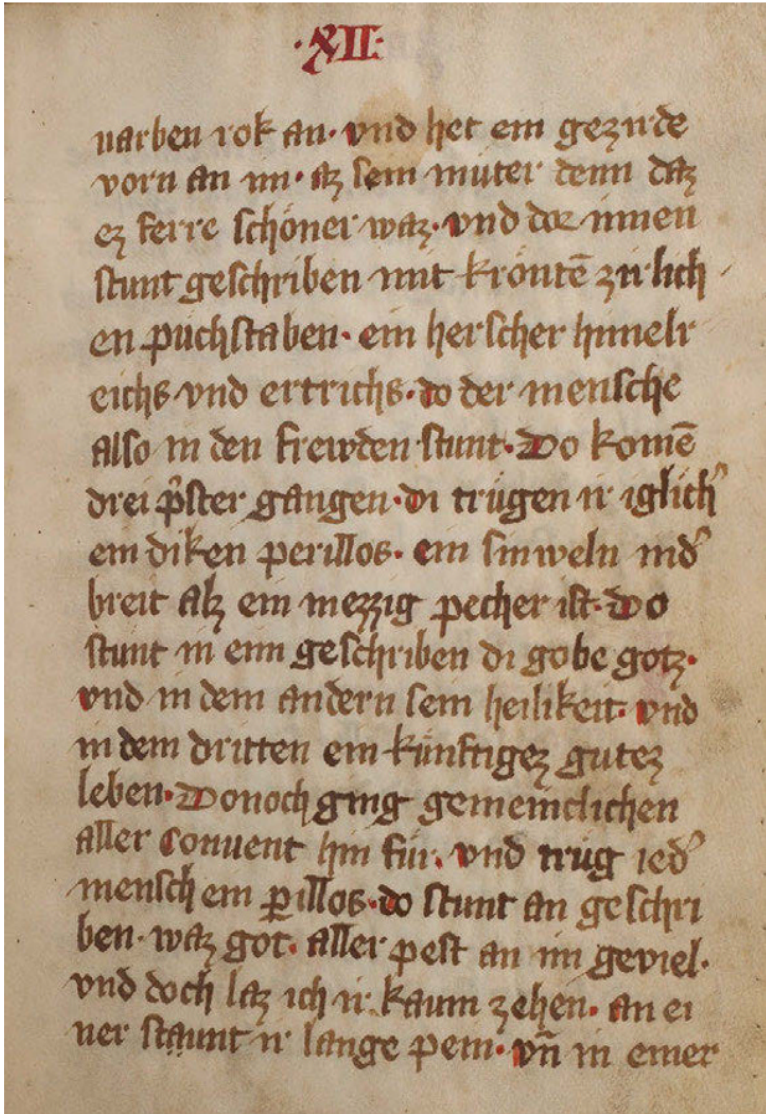 ·XII·
varben rok an· vnd het ein gezirde
vorn an im· az sein muter denn daz
ez ferre schöner waz· vnd dor innen
stunt geschriben mit kröntē zirlich
en puchstaben· ein herscher himelr
eichs vnd ertrichs· do der mensche
also in den frewden stunt· Do komē
drei pͥster gangen· di trůgen ir iglich᾽
ein diken perillos· ein sinweln nid᾽
breit alz ein mezzig pecher ist· do
stunt in eim geschriben di gobe gotz·
vnd in dem andern sein heilikeit· vnd
in dem dritten ein künftigez gutez
leben· Donoch ging gemeinclichen
aller Conuent hin für· vnd trůg ied᾽
mensch ein ꝑillos· do stunt an geschri
ben· waz got· aller pest an im geviel·
vnd doch laz ich ir kaum zehen· an ei
ner staunt ir lange pein· vn̄ in einer